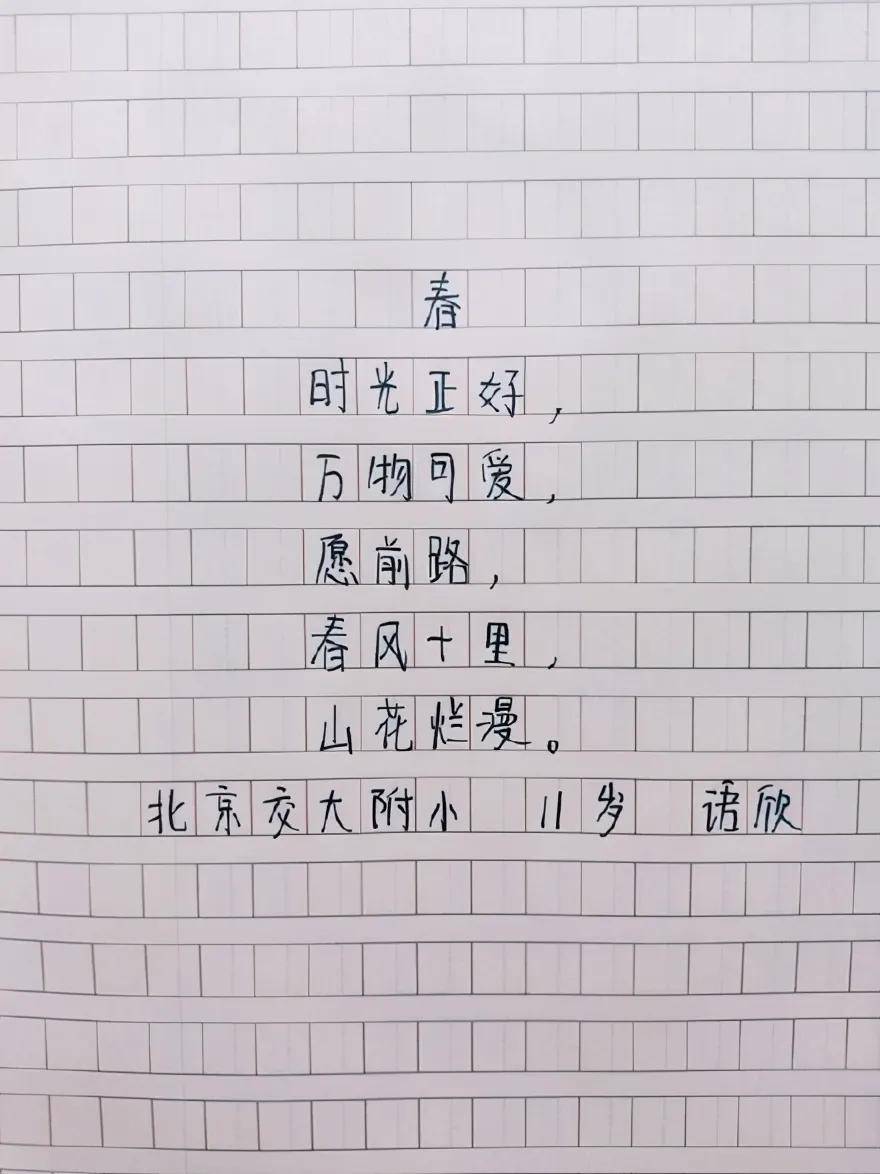 春
时光正好，
万物可爱，
愿前路，
春风十里，
山花烂漫。
北京交大附小 11岁 语欣